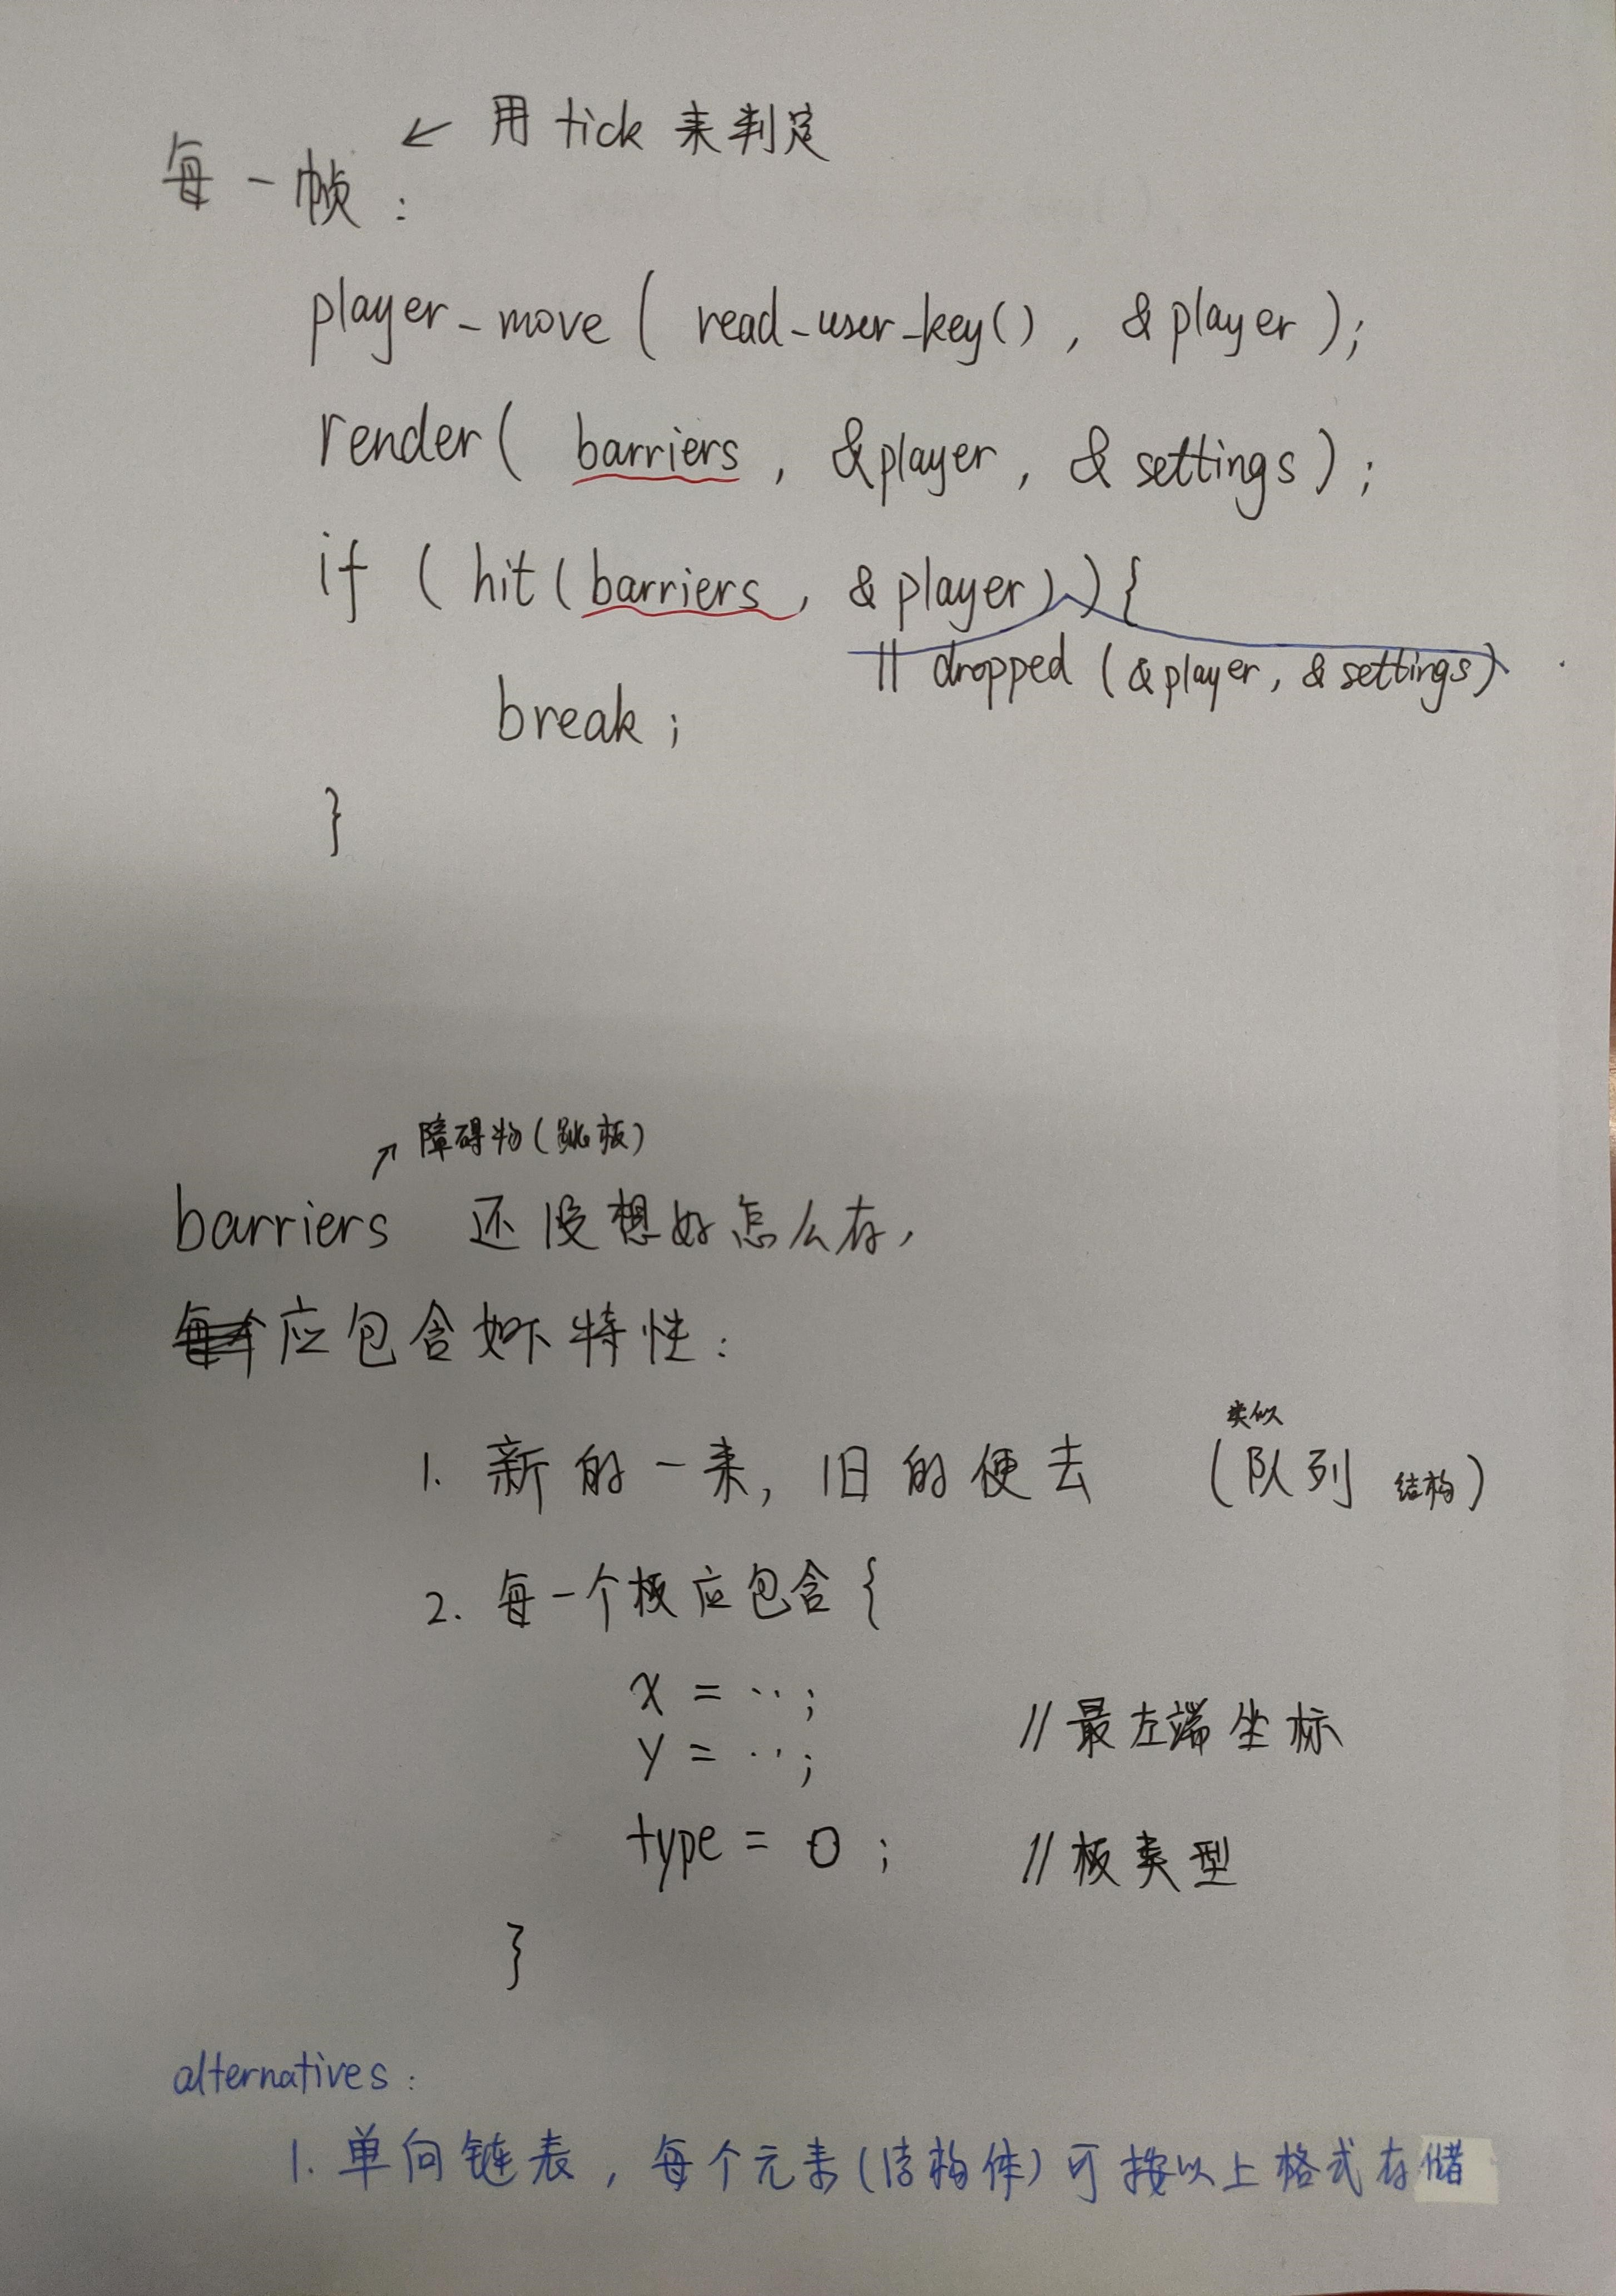 用 tick 来判定
每一帧：
player_move ( read_user_key() , &player );
render( barriers , &player , & settings ) ;
if ( hit ( barriers , & player ) ) {
|| dropped ( &player , & settings )
break ;
}
障碍物 (跳板)
barriers 还没想好怎么存，
应包含如下特性：
类似
1. 新的一来，旧的便去 ( 队列 结构 )
2. 每一个板应包含 {
x = ··· ;
y = ··· ; // 最左端坐标
type = 0 ; // 板类型
}
alternatives :
1. 单向链表，每个元素(结构体)可按以上格式存储